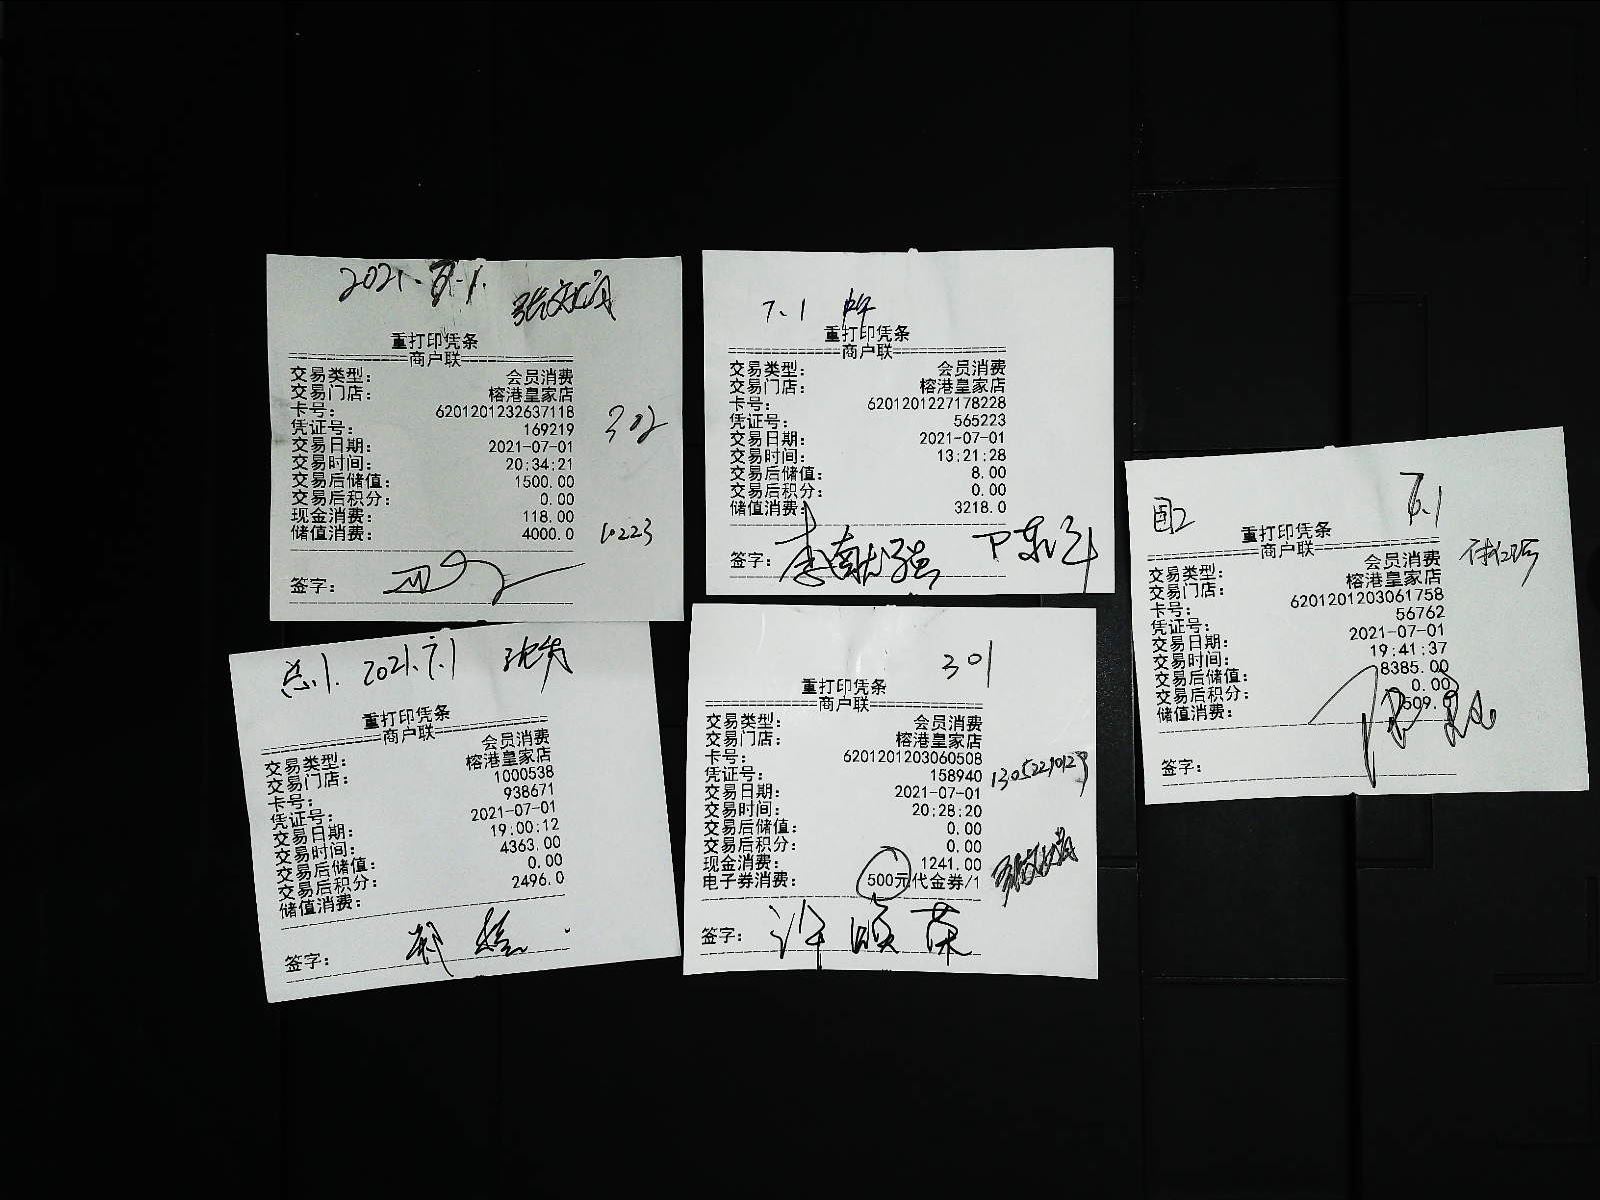 2021.7.1.
重打印凭条
商户联
交易类型： 会员消费
交易门店： 榕港皇家店
卡号： 6201201232637118
凭证号： 169219
交易日期： 2021-07-01
交易时间： 20:34:21
交易后储值： 1500.00
交易后积分： 0.00
现金消费： 118.00
储值消费： 4000.0
签字：
302
10223
7.1
重打印凭条
商户联
交易类型： 会员消费
交易门店： 榕港皇家店
卡号： 6201201227178228
凭证号： 565223
交易日期： 2021-07-01
交易时间： 13:21:28
交易后储值： 8.00
交易后积分： 0.00
储值消费： 3218.0
签字：
7.1
重打印凭条
商户联
交易类型： 会员消费
交易门店： 榕港皇家店
卡号： 6201201203061758
凭证号： 56762
交易日期： 2021-07-01
交易时间： 19:41:37
交易后储值： 8385.00
交易后积分： 0.00
储值消费：
签字：
总1. 2021.7.1
重打印凭条
商户联
交易类型： 会员消费
交易门店： 榕港皇家店
卡号： 1000538
凭证号： 938671
交易日期： 2021-07-01
交易时间： 19:00:12
交易后储值： 4363.00
交易后积分： 0.00
储值消费： 2496.0
签字：
301
重打印凭条
商户联
交易类型： 会员消费
交易门店： 榕港皇家店
卡号： 6201201203060508
凭证号： 158940
交易日期： 2021-07-01
交易时间： 20:28:20
交易后储值： 0.00
交易后积分： 0.00
现金消费： 1241.00
电子券消费： 500元代金券/1
签字： 许顺荣